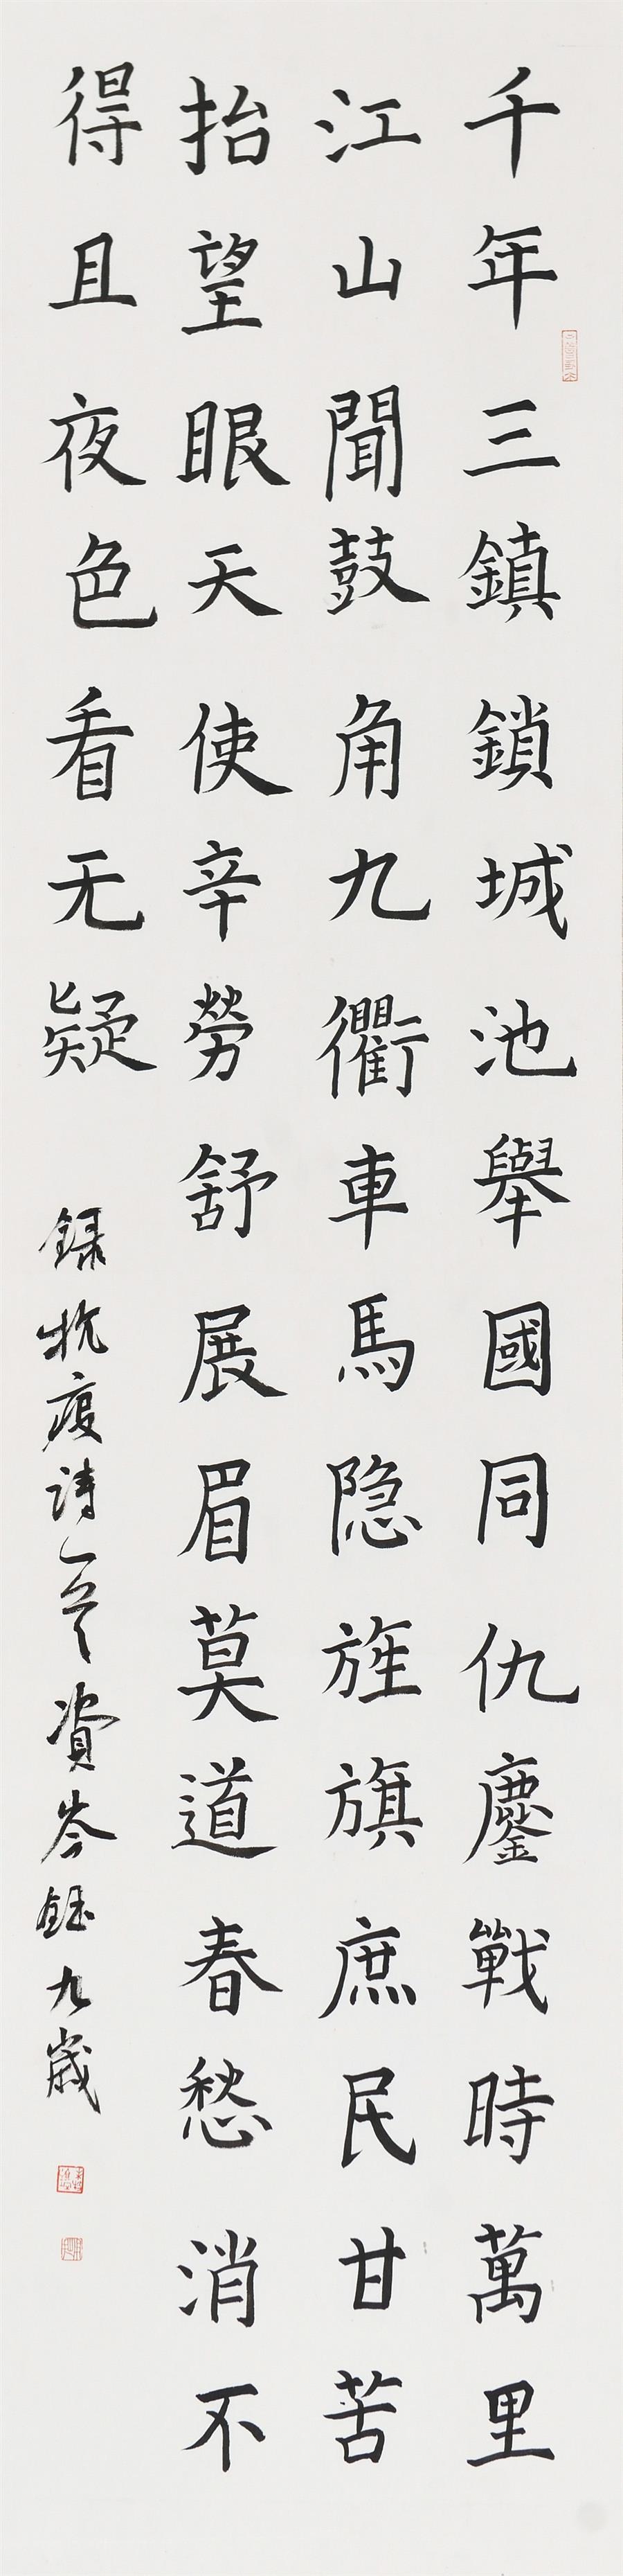 千年三鎮鎖城池舉國同仇鏖戰時萬里
江山聞鼓角九衢車馬隐旌旗庶民甘苦
抬望眼天使辛勞舒展眉莫道春愁消不
得且夜色看无疑
録抗疫詩一首 資岑鈺九歲